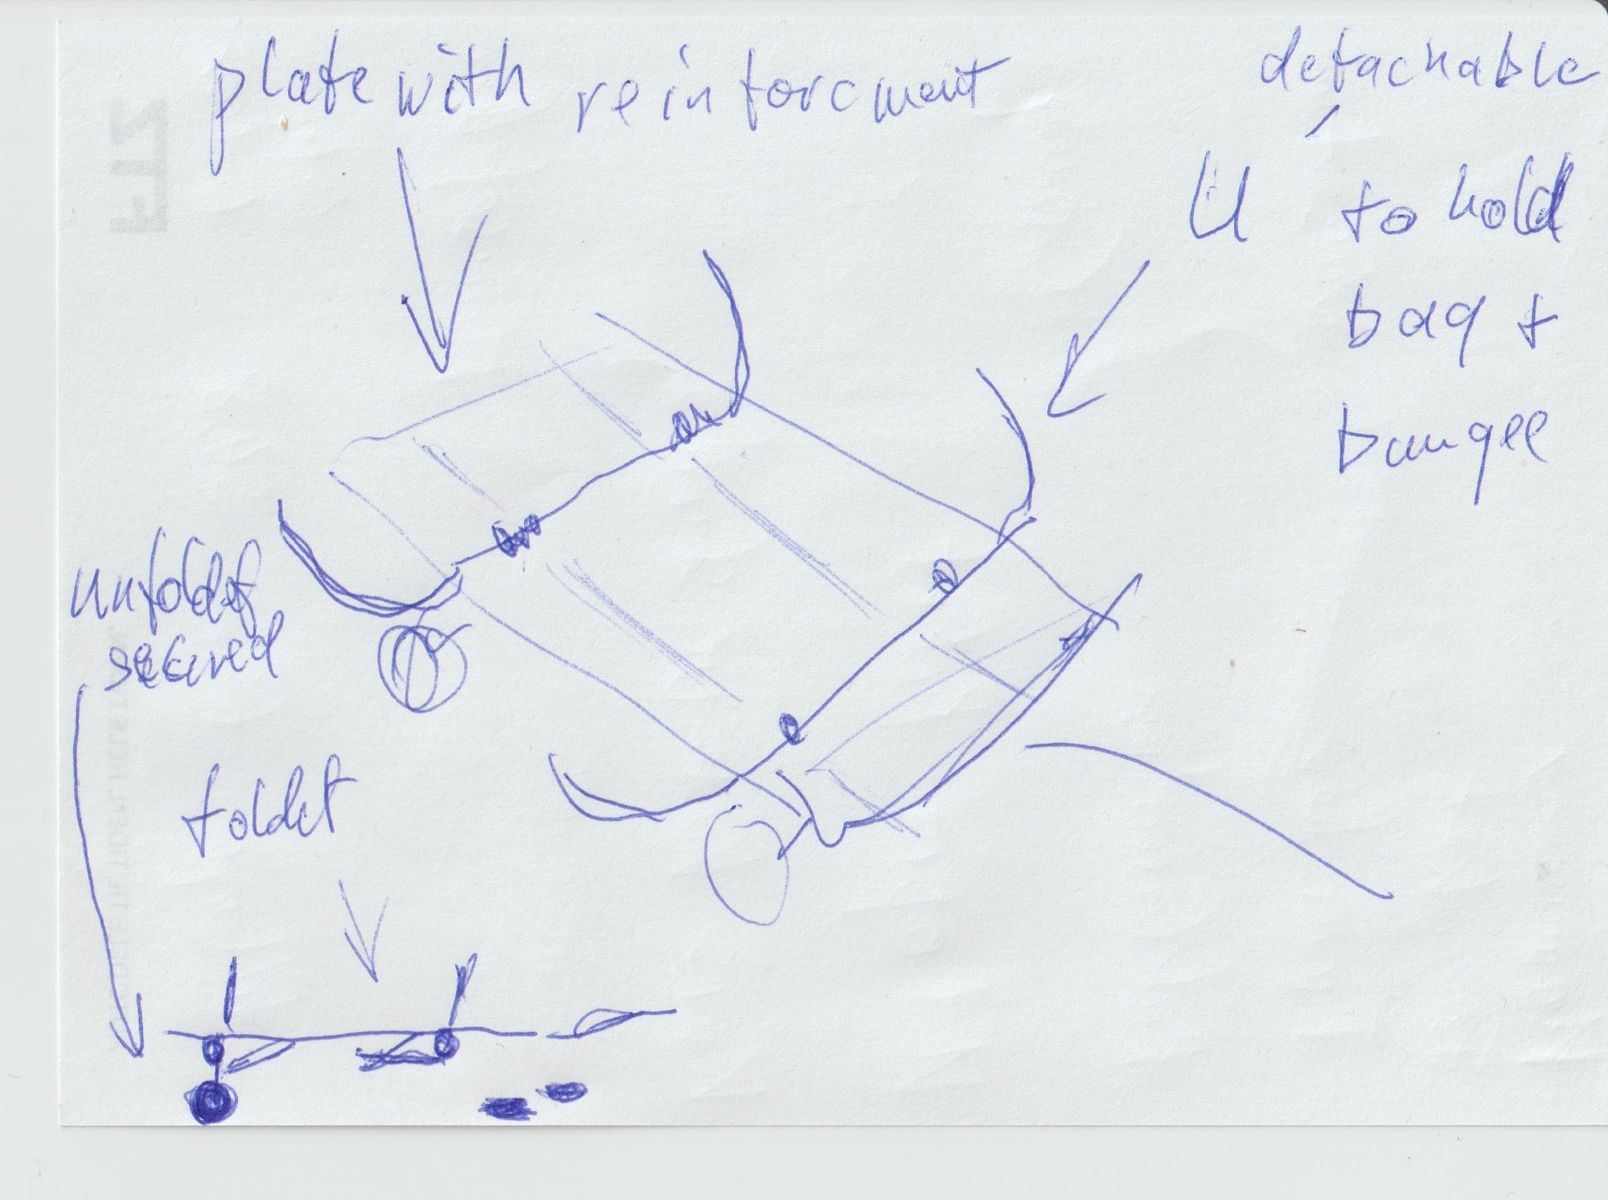 plate with reinforcment
detachable
U to hold
bag +
bungee
unfoldet
secured
foldet